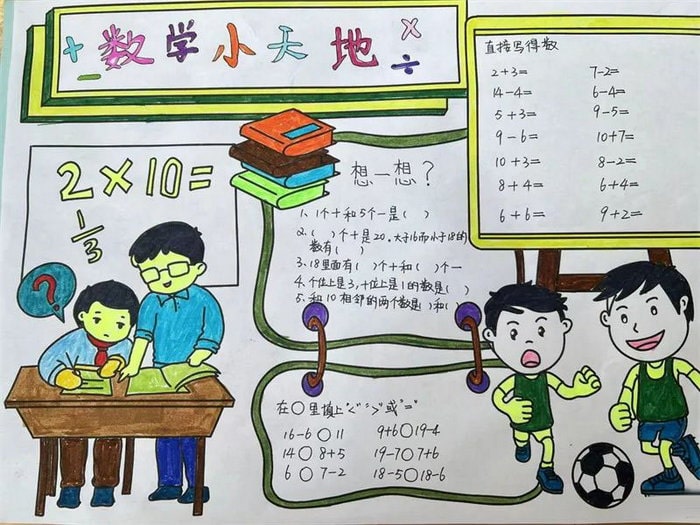 + 数学小天地 ×
− ÷
直接写得数
2+3= 7-2=
14-4= 6-4=
5+3= 9-5=
9-6= 10+7=
10+3= 8-2=
8+4= 6+4=
6+6= 9+2=
2×10=
1/3
?
想一想?
1. 1个十和5个一是( )
2.( )个十是20,大于16而小于18的
数有( )
3. 18里面有( )个十和( )个一
4. 个位上是3,十位上是1的数是( )
5. 和10相邻的两个数是( )和( )
在○里填上"<" ">"或"="
16-6○11 9+6○19-4
14○8+5 19-7○7+6
6○7-2 18-5○18-6